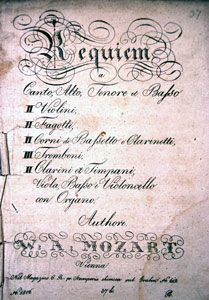 Requiem
a
Canto, Alto, Tenore et Basso
II Violini,
II Fagotti,
II Corni di Bassetto o Clarinetti,
III Tromboni
II Clarini et Timpani,
Viola Basso e Violoncello
con Organo.
Authore
W. A. MOZART
Vienna